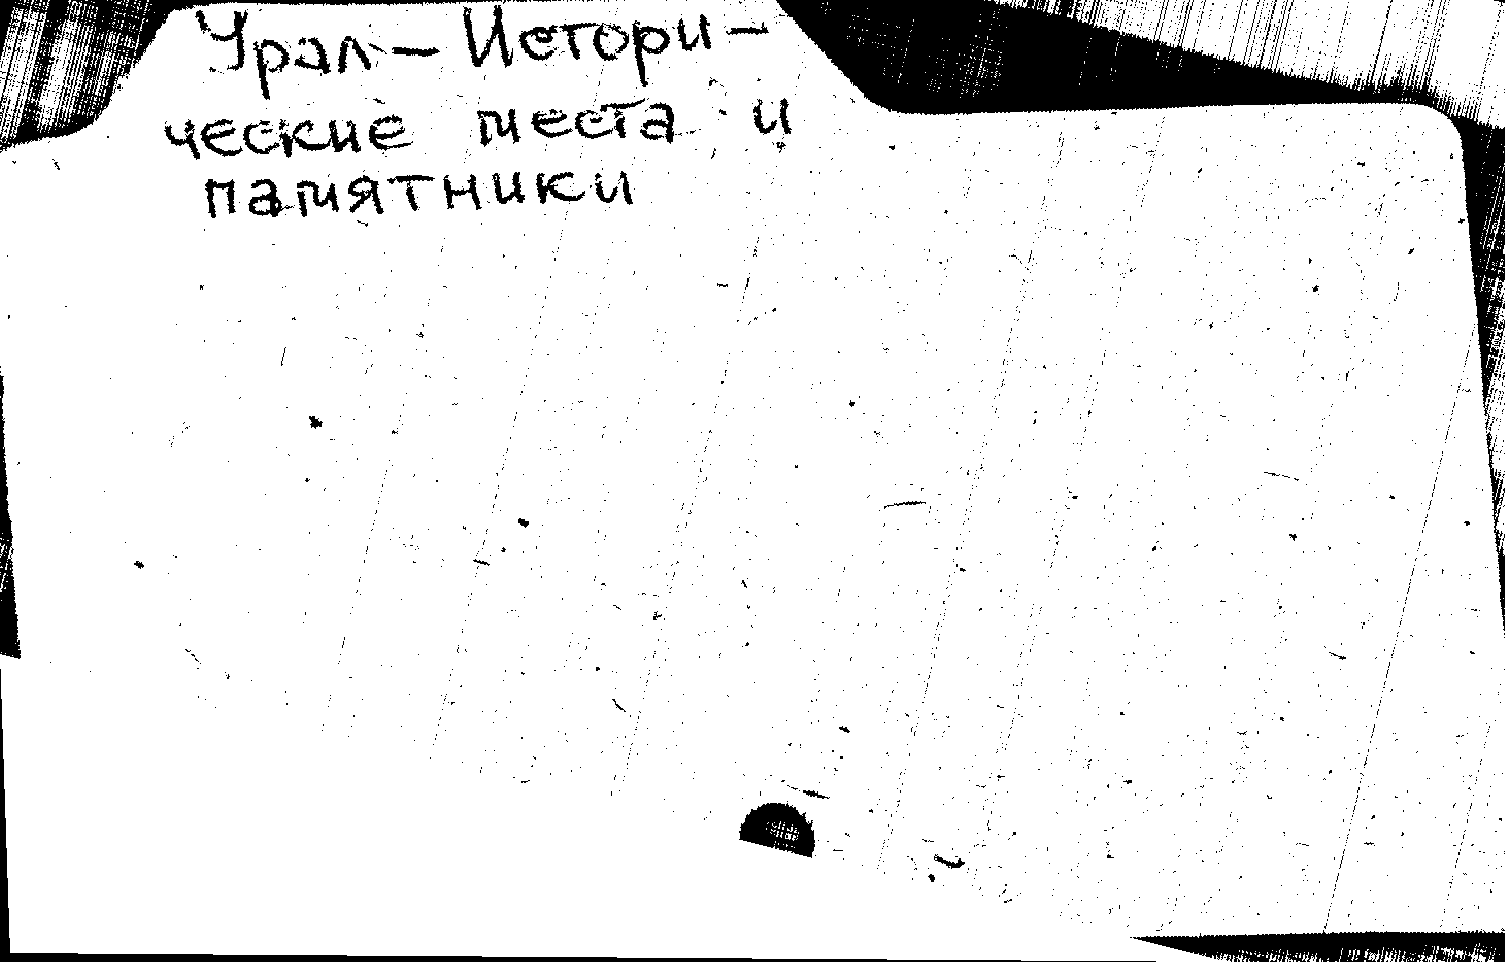 Урал – Истори-
ческие места и
памятники